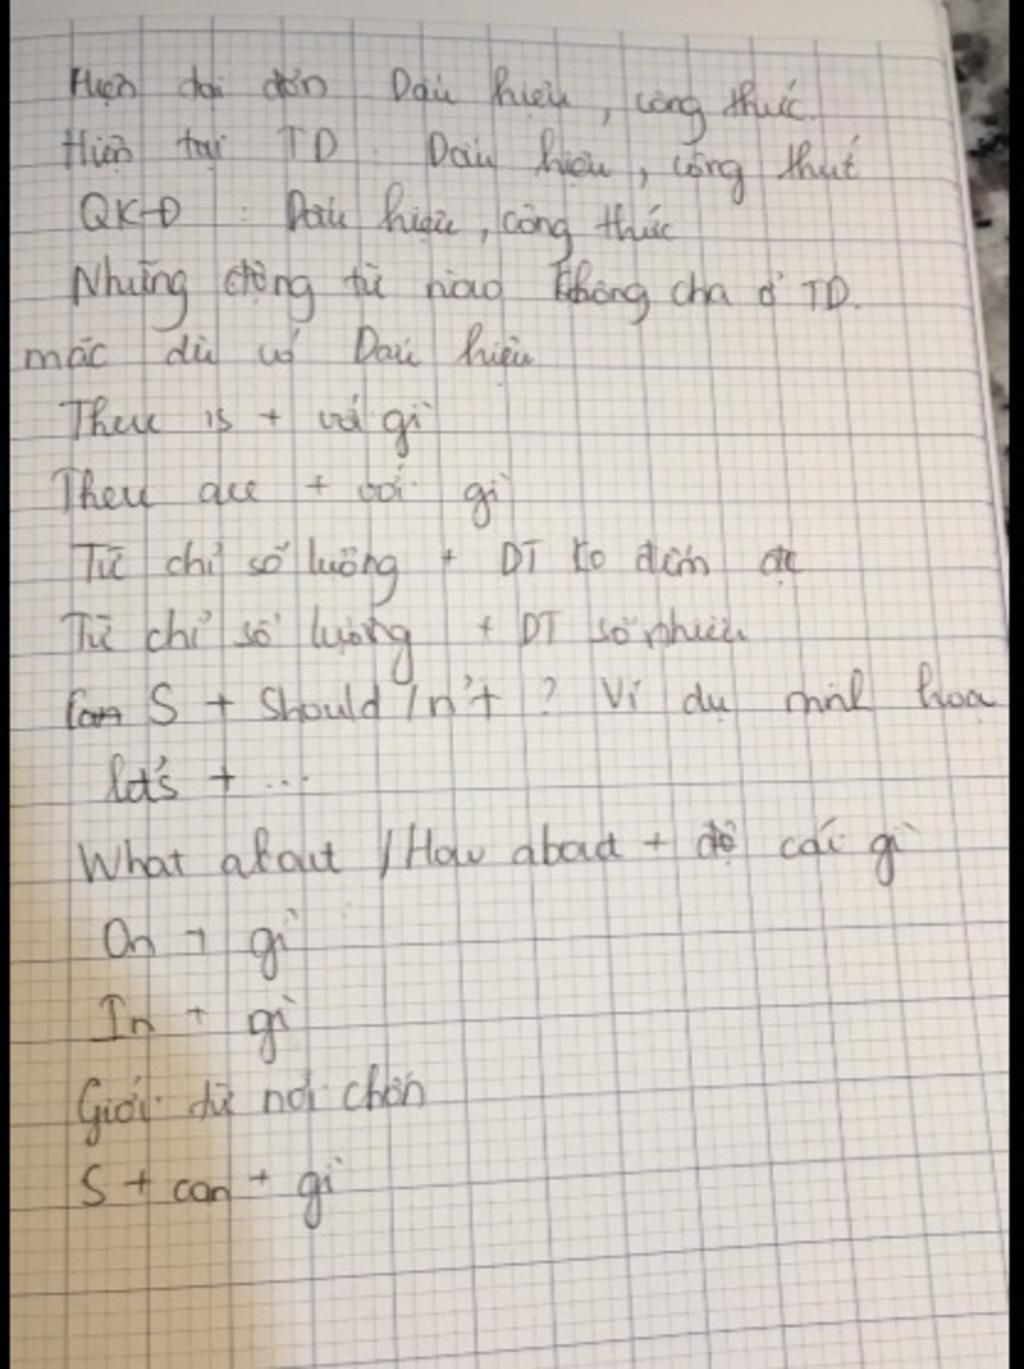 Hiện tại đơn Dấu hiệu, công thức.
Hiện tại TD. Dấu hiệu, công thức
QKĐ : Dấu hiệu, công thức
Những động từ nào không chia ở TD.
mặc dù có Dấu hiệu
There is + với gì
There are + với gì
Từ chỉ số lượng + DT ko đếm đc
Từ chỉ số lượng + DT số nhiều
S + Should /n't ? Ví dụ minh hoạ
let's + ...
What about / How about + cái gì
On + gì
In + gì
Giới từ nơi chốn
S + can + gì